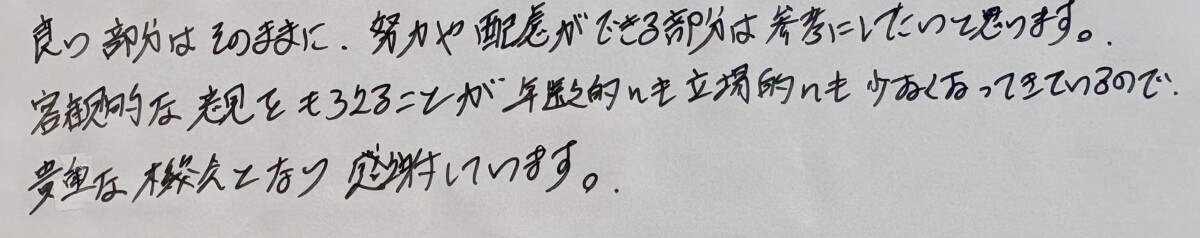 良い部分はそのままに、努力や配慮ができる部分は参考にしたいと思います。
客観的な意見をもらえることが年齢的にも立場的にも少なくなってきているので、
貴重な機会となり感謝しています。